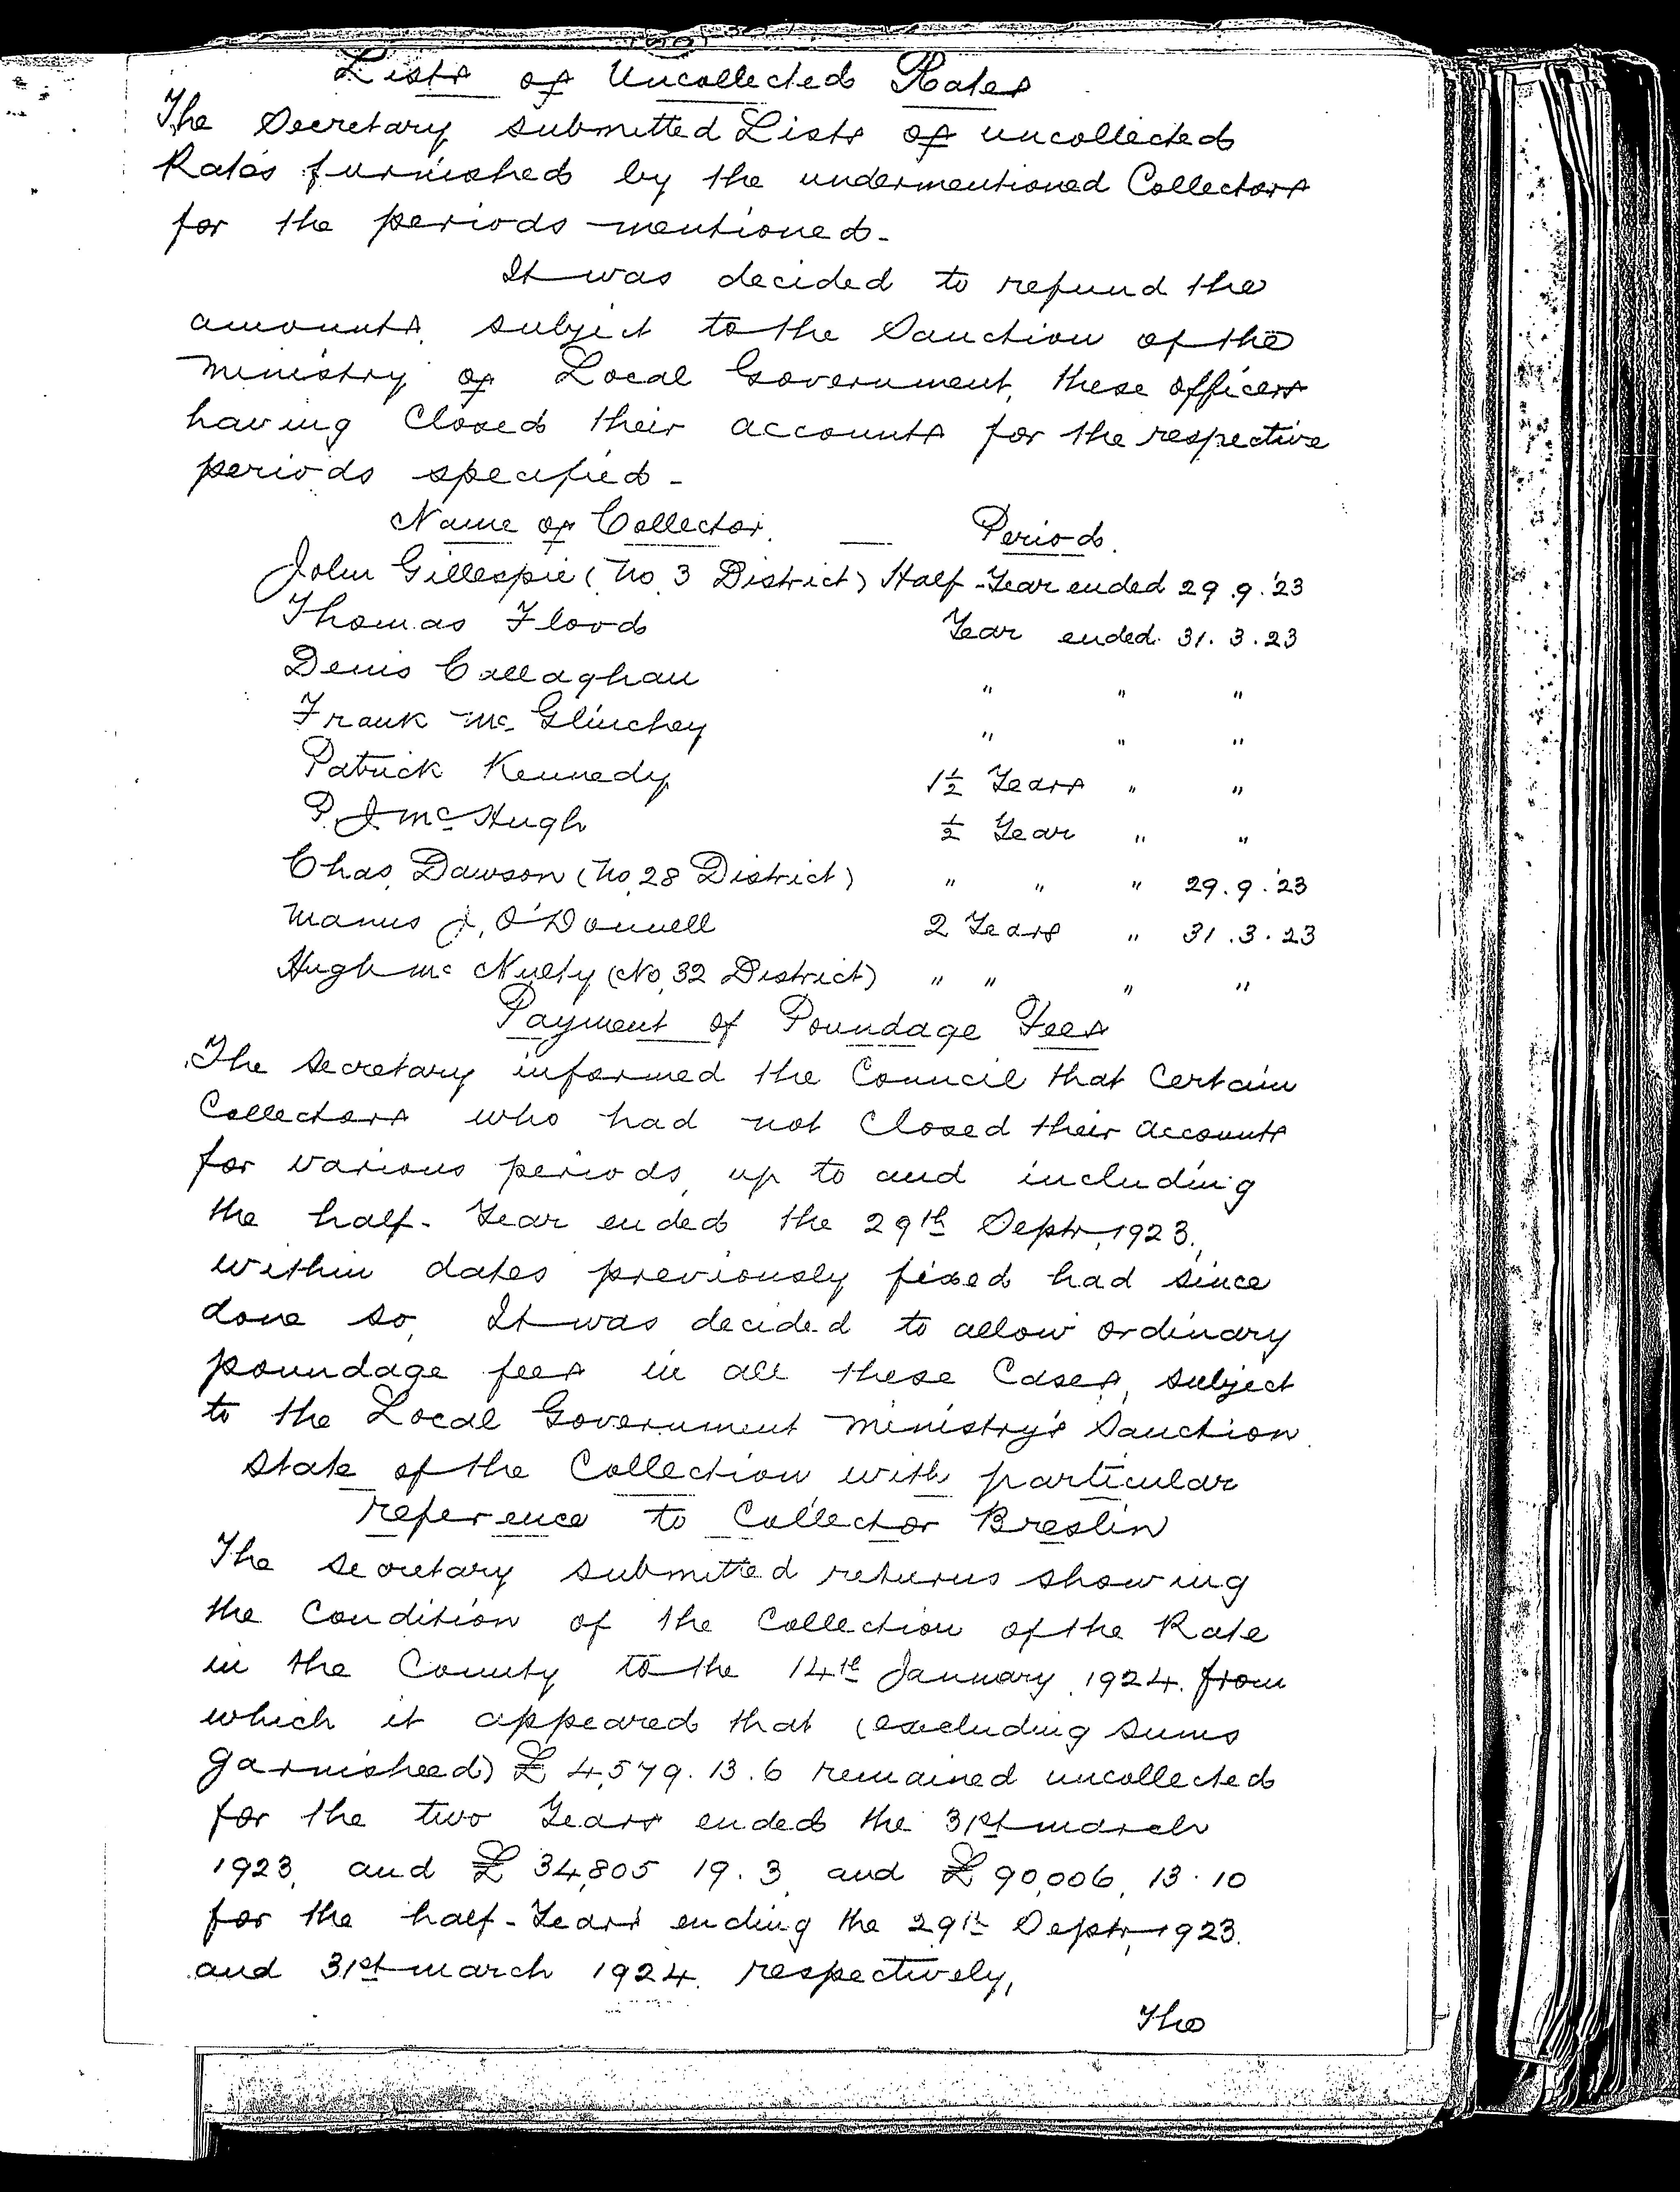 Lists of Uncollected Rates
The Secretary submitted Lists of uncollected
Rates furnished by the undermentioned Collectors
for the periods mentioned -
It was decided to refund the
amounts, subject to the Sanction of the
Ministry of Local Government, these officers
having Closed their accounts for the respective
periods specified -
Name of Collector. — Period.
John Gillespie (No. 3 District) Half-Year ended 29.9.'23
Thomas Flood Year ended 31.3.23
Denis Callaghan " " "
Frank Mc Glinchey " " "
Patrick Kennedy 1½ Years " "
P. J. McHugh ½ Year " "
Chas. Dawson (No. 28 District) " " " 29.9.'23
Manus J. O'Donnell 2 Years " 31.3.23
Hugh Mc Nulty (No. 32 District) " " " "
Payment of Poundage Fees
The Secretary informed the Council that Certain
Collectors who had not Closed their accounts
for various periods, up to and including
the half-Year ended the 29th Septr, 1923,
within dates previously fixed had since
done so. It was decided to allow ordinary
poundage fees in all these Cases, subject
to the Local Government Ministry's Sanction.
State of the Collection with particular
reference to Collector Breslin
The Secretary submitted returns showing
the Condition of the Collection of the Rate
in the County to the 14th January, 1924. from
which it appeared that (excluding sums
garnisheed) £4,579.13.6 remained uncollected
for the two Years ended the 31st March
1923, and £34,805 19.3, and £90,006, 13.10
for the half-Years ending the 29th Septr, 1923.
and 31st March 1924. respectively,
The